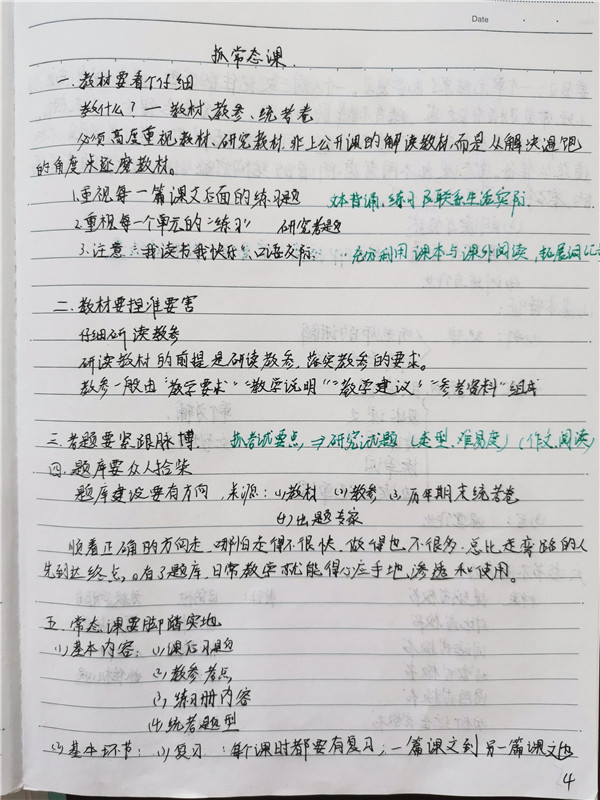 Date
抓常态课
一.教材要看个仔细
教什么?—教材、教参、统考卷
必须高度重视教材、研究教材,非上公开课的解读教材,而是从解决温饱
的角度来琢磨教材。
1.重视每一篇课文后面的练习题 文本背诵、练习及联系生活实际
2.重视每个单元的“练习” 研究考题
3.注意:我读书我快乐、口语交际… 充分利用课本与课外阅读,拓展词汇
二.教材要捏准要害
仔细研读教参
研读教材的前提是研读教参,落实教参的要求。
教参一般由“教学要求”“教学说明”“教学建议”“参考资料”组成
三.考题要紧跟脉搏. 抓考试要点,⇒研究试题(类型、难易度)(作文、阅读)
四.题库要众人拾柴
题库建设要有方向,来源:(1)教材 (2)教参 (3)历年期末统考卷
(4)出题专家
顺着正确的方向走,哪怕走得不很快,做得也不很多,总比走弯路的人
先到达终点。有了题库,日常教学就能得心应手地渗透和使用。
五.常态课要脚踏实地
(1)基本内容:(1)课后习题
(2)教参考点
(3)练习册内容
(4)统考题型
(2)基本环节:(1)复习:每个课时都要有复习;一篇课文到另一篇课文也
4